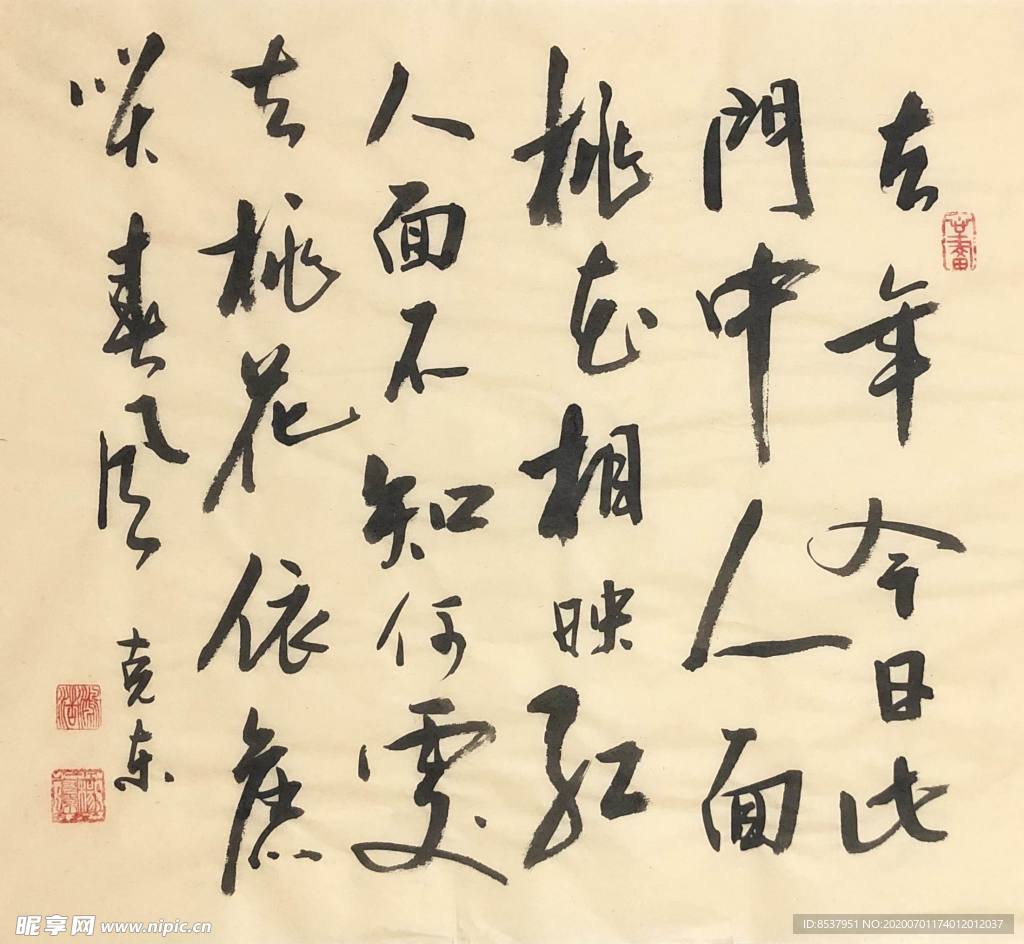 去年今日此
門中人面
桃花相映紅
人面不知何處
去桃花依舊
咲春風
克东
昵享网 www.nipic.cn
ID:8537951 NO:20200701174012012037